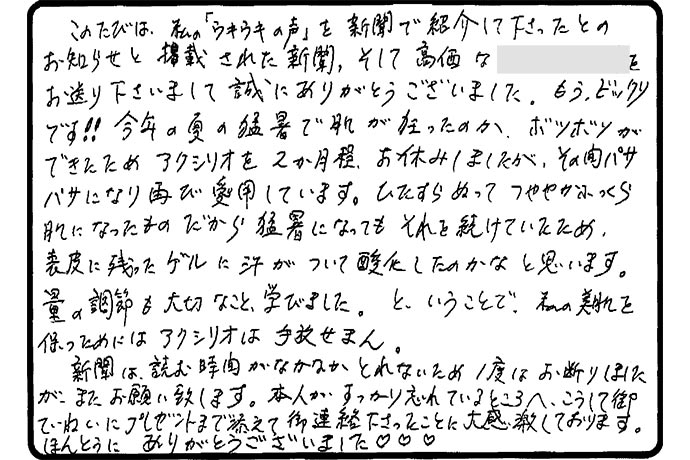 このたびは、私の「ウキウキの声」を新聞で紹介して下さったとの
お知らせと掲載された新聞、そして高価な を
お送り下さいまして誠にありがとうございました。もう、ビックリ
です!!今年の夏の猛暑で肌が狂ったのか、ボツボツが
できたためアクシリオを2か月程、お休みしましたが、その間パサ
パサになり再び愛用しています。ひたすらぬってつややかふっくら
肌になったものだから猛暑になってもそれを続けていたため、
表皮に残ったゲルに汗がついて酸化したのかなと思います。
量の調節も大切なこと、学びました。と、いうことで、私の美肌を
保つためにはアクシリオは手放せません。
新聞は、読む時間がなかなかとれないため1度はお断りしました
が、またお願い致します。本人がすっかり忘れているところへ、こうして御
ていねいにプレゼントまで添えて御連絡下さったことに大感激しております。
ほんとうにありがとうございました♡♡♡